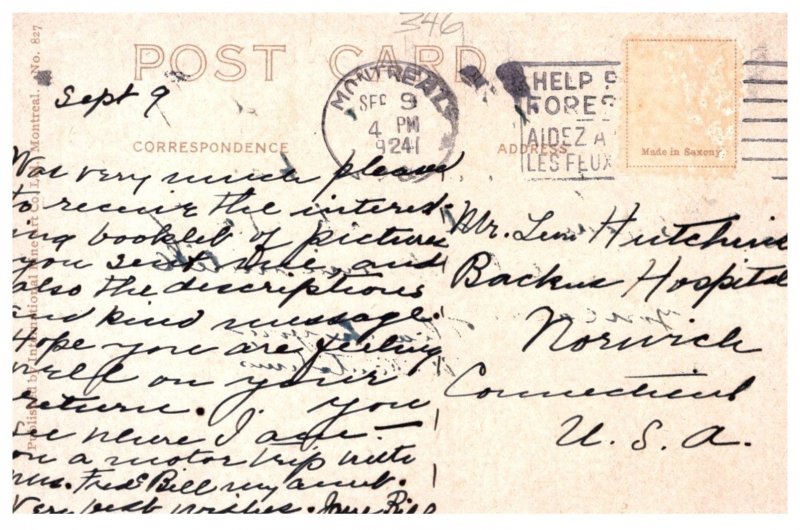 346
POST CARD
MONTREAL
SEP 9
4 PM
1924
HELP
FORES
AIDEZ A
LES FEUX
Made in Saxony
CORRESPONDENCE
ADDRESS
Published by International Fine Art Co. Ltd., Montreal. No. 827
Sept 9
Was very much pleased
to receive the interest-
ing booklet of pictures
you sent me and
also the descriptions
and kind message.
Hope you are feeling
well on your
return. You
see where I am —
on a motor trip with
Mrs. Fred Bill my aunt.
Very best wishes.
Mr. Levi Hutchins
Backus Hospital
Norwich
Connecticut
U. S. A.